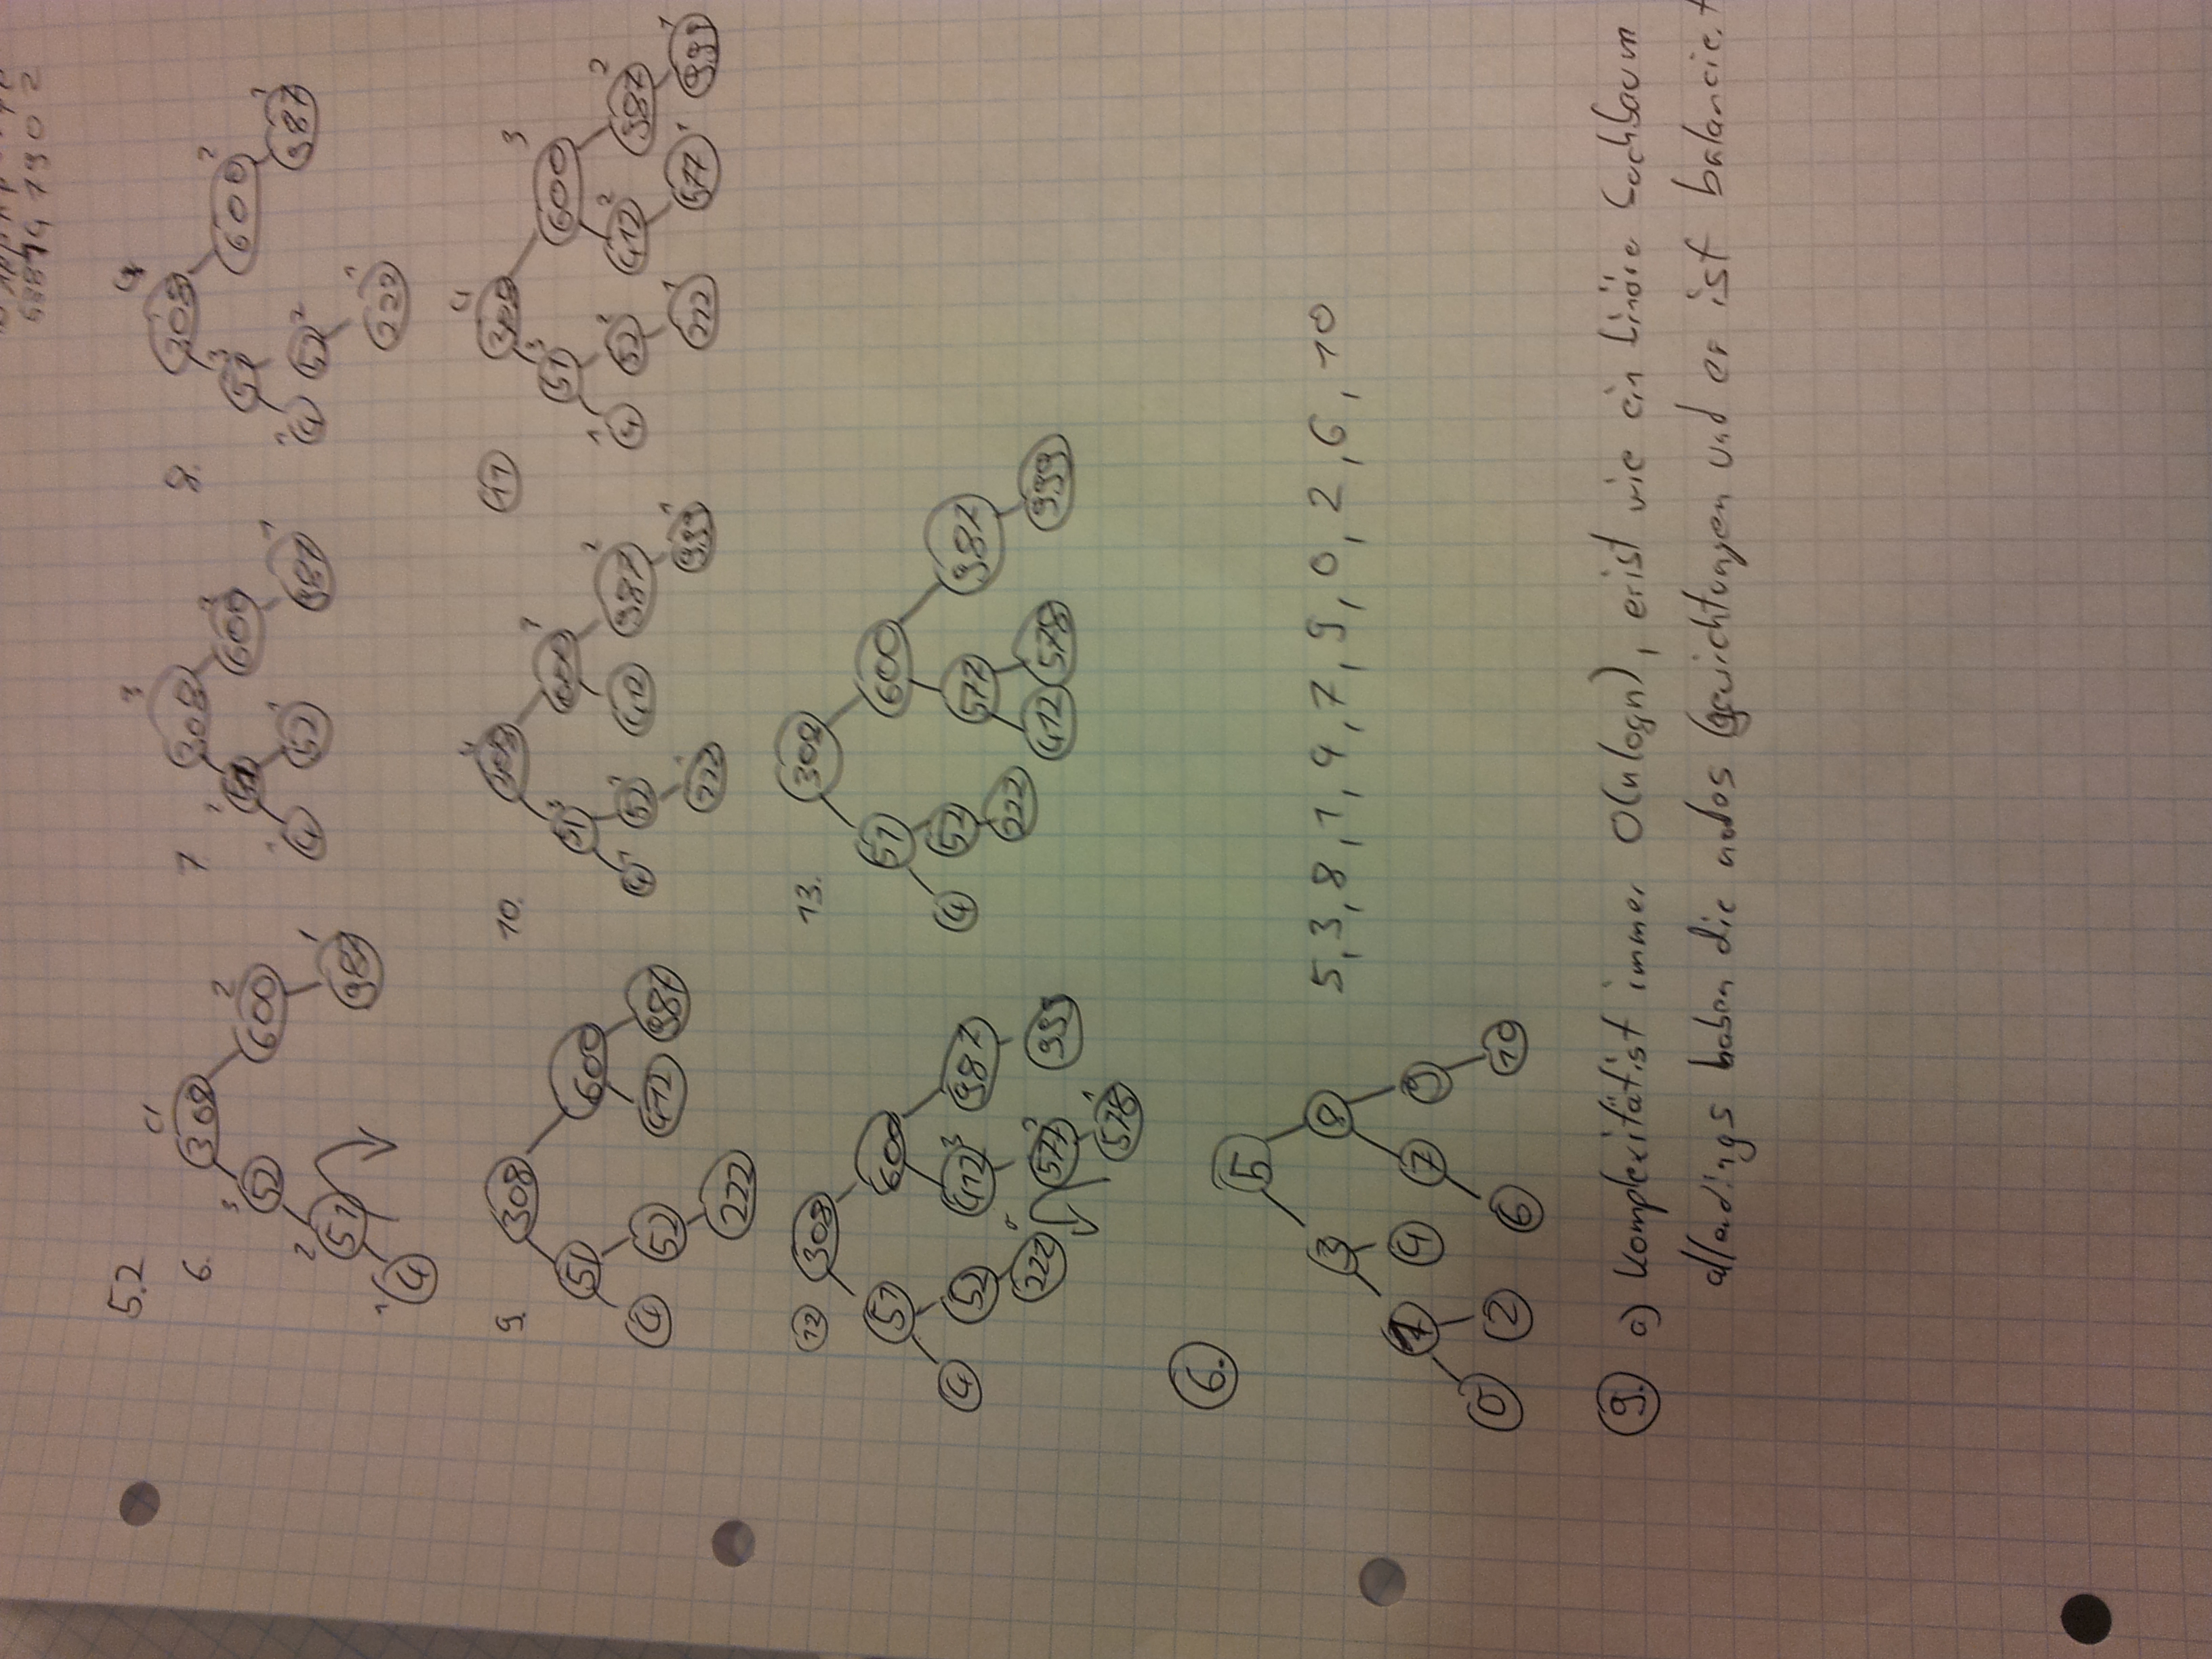 588147902
5.2
6. 4 308 3 52 2 600 2 51 1 987 1 4
7 3 308 2 51 2 600 1 4 52 1 987 1
8. 4 308 51 3 600 2 1 4 52 2 987 1 222 1
9. 308 51 600 4 52 412 987 222
10. 4 308 51 3 600 3 4 1 52 2 412 987 2 222 1 999 1
11 4 308 51 3 600 3 1 4 52 2 412 2 987 2 222 1 577 1 999 1
12 308 51 600 4 52 412 3 987 222 577 2 999 578 1
13. 308 51 600 4 52 577 987 222 412 578 999
6.
5
3 8
5, 3, 8, 1, 4, 7, 9, 0, 2, 6, 10
1 4 7 9
0 2 6 10
9. a) Komplexität ist immer O(n logn), er ist wie ein binäre Suchbaum
allerdings haben die nodes Gewichtungen und er ist balanciert